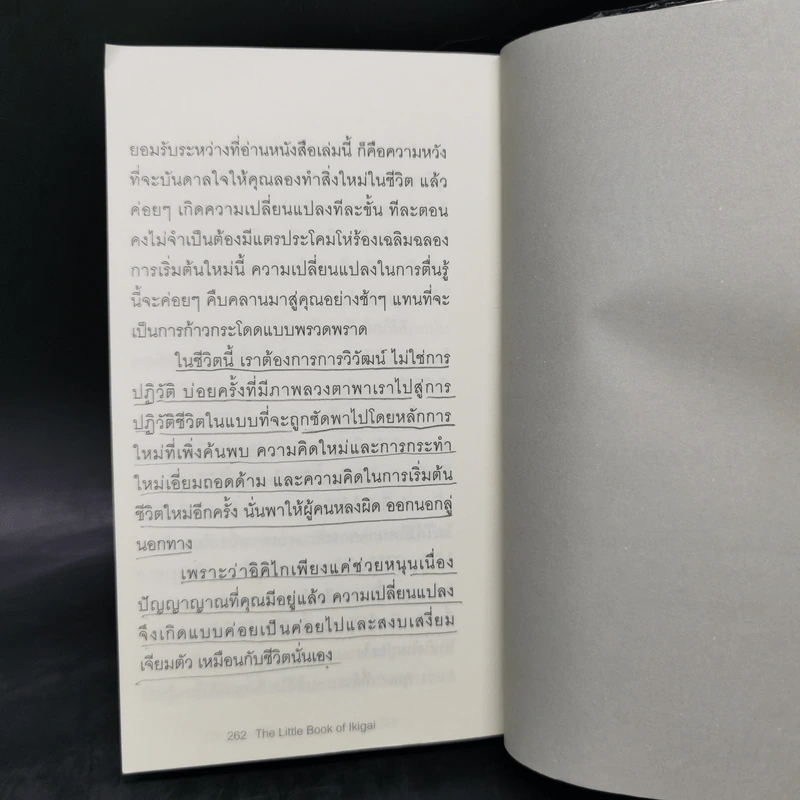 ยอมรับระหว่างที่อ่านหนังสือเล่มนี้ ก็คือความหวัง
ที่จะบันดาลใจให้คุณลองทำสิ่งใหม่ในชีวิต แล้ว
ค่อยๆ เกิดความเปลี่ยนแปลงทีละขั้น ทีละตอน
คงไม่จำเป็นต้องมีแตรประโคมโห่ร้องเฉลิมฉลอง
การเริ่มต้นใหม่นี้ ความเปลี่ยนแปลงในการตื่นรู้
นี้จะค่อยๆ คืบคลานมาสู่คุณอย่างช้าๆ แทนที่จะ
เป็นการก้าวกระโดดแบบพรวดพราด
ในชีวิตนี้ เราต้องการการวิวัฒน์ ไม่ใช่การ
ปฏิวัติ บ่อยครั้งที่มีภาพลวงตาพาเราไปสู่การ
ปฏิวัติชีวิตในแบบที่จะถูกซัดพาไปโดยหลักการ
ใหม่ที่เพิ่งค้นพบ ความคิดใหม่และการกระทำ
ใหม่เอี่ยมถอดด้าม และความคิดในการเริ่มต้น
ชีวิตใหม่อีกครั้ง นั่นพาให้ผู้คนหลงผิด ออกนอกลู่
นอกทาง
เพราะว่าอิคิไกเพียงแค่ช่วยหนุนเนื่อง
ปัญญาญาณที่คุณมีอยู่แล้ว ความเปลี่ยนแปลง
จึงเกิดแบบค่อยเป็นค่อยไปและสงบเสงี่ยม
เจียมตัว เหมือนกับชีวิตนั่นเอง
262 The Little Book of Ikigai